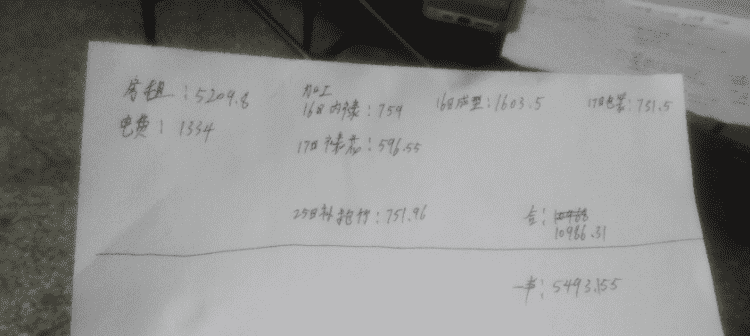 房租：5209.8
电费：1334
加工
16日内：759 16日成型：1603.5 17日包装：731.5
17日：596.55
25日补：751.96 合：
10986.31
一半：5493.155